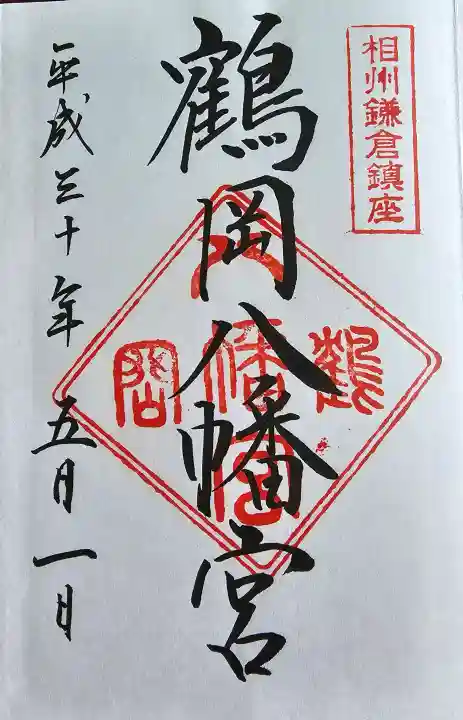 相州鎌倉鎮座
鶴岡八幡宮
鶴
八幡宮
岡
平成三十年 五月一日